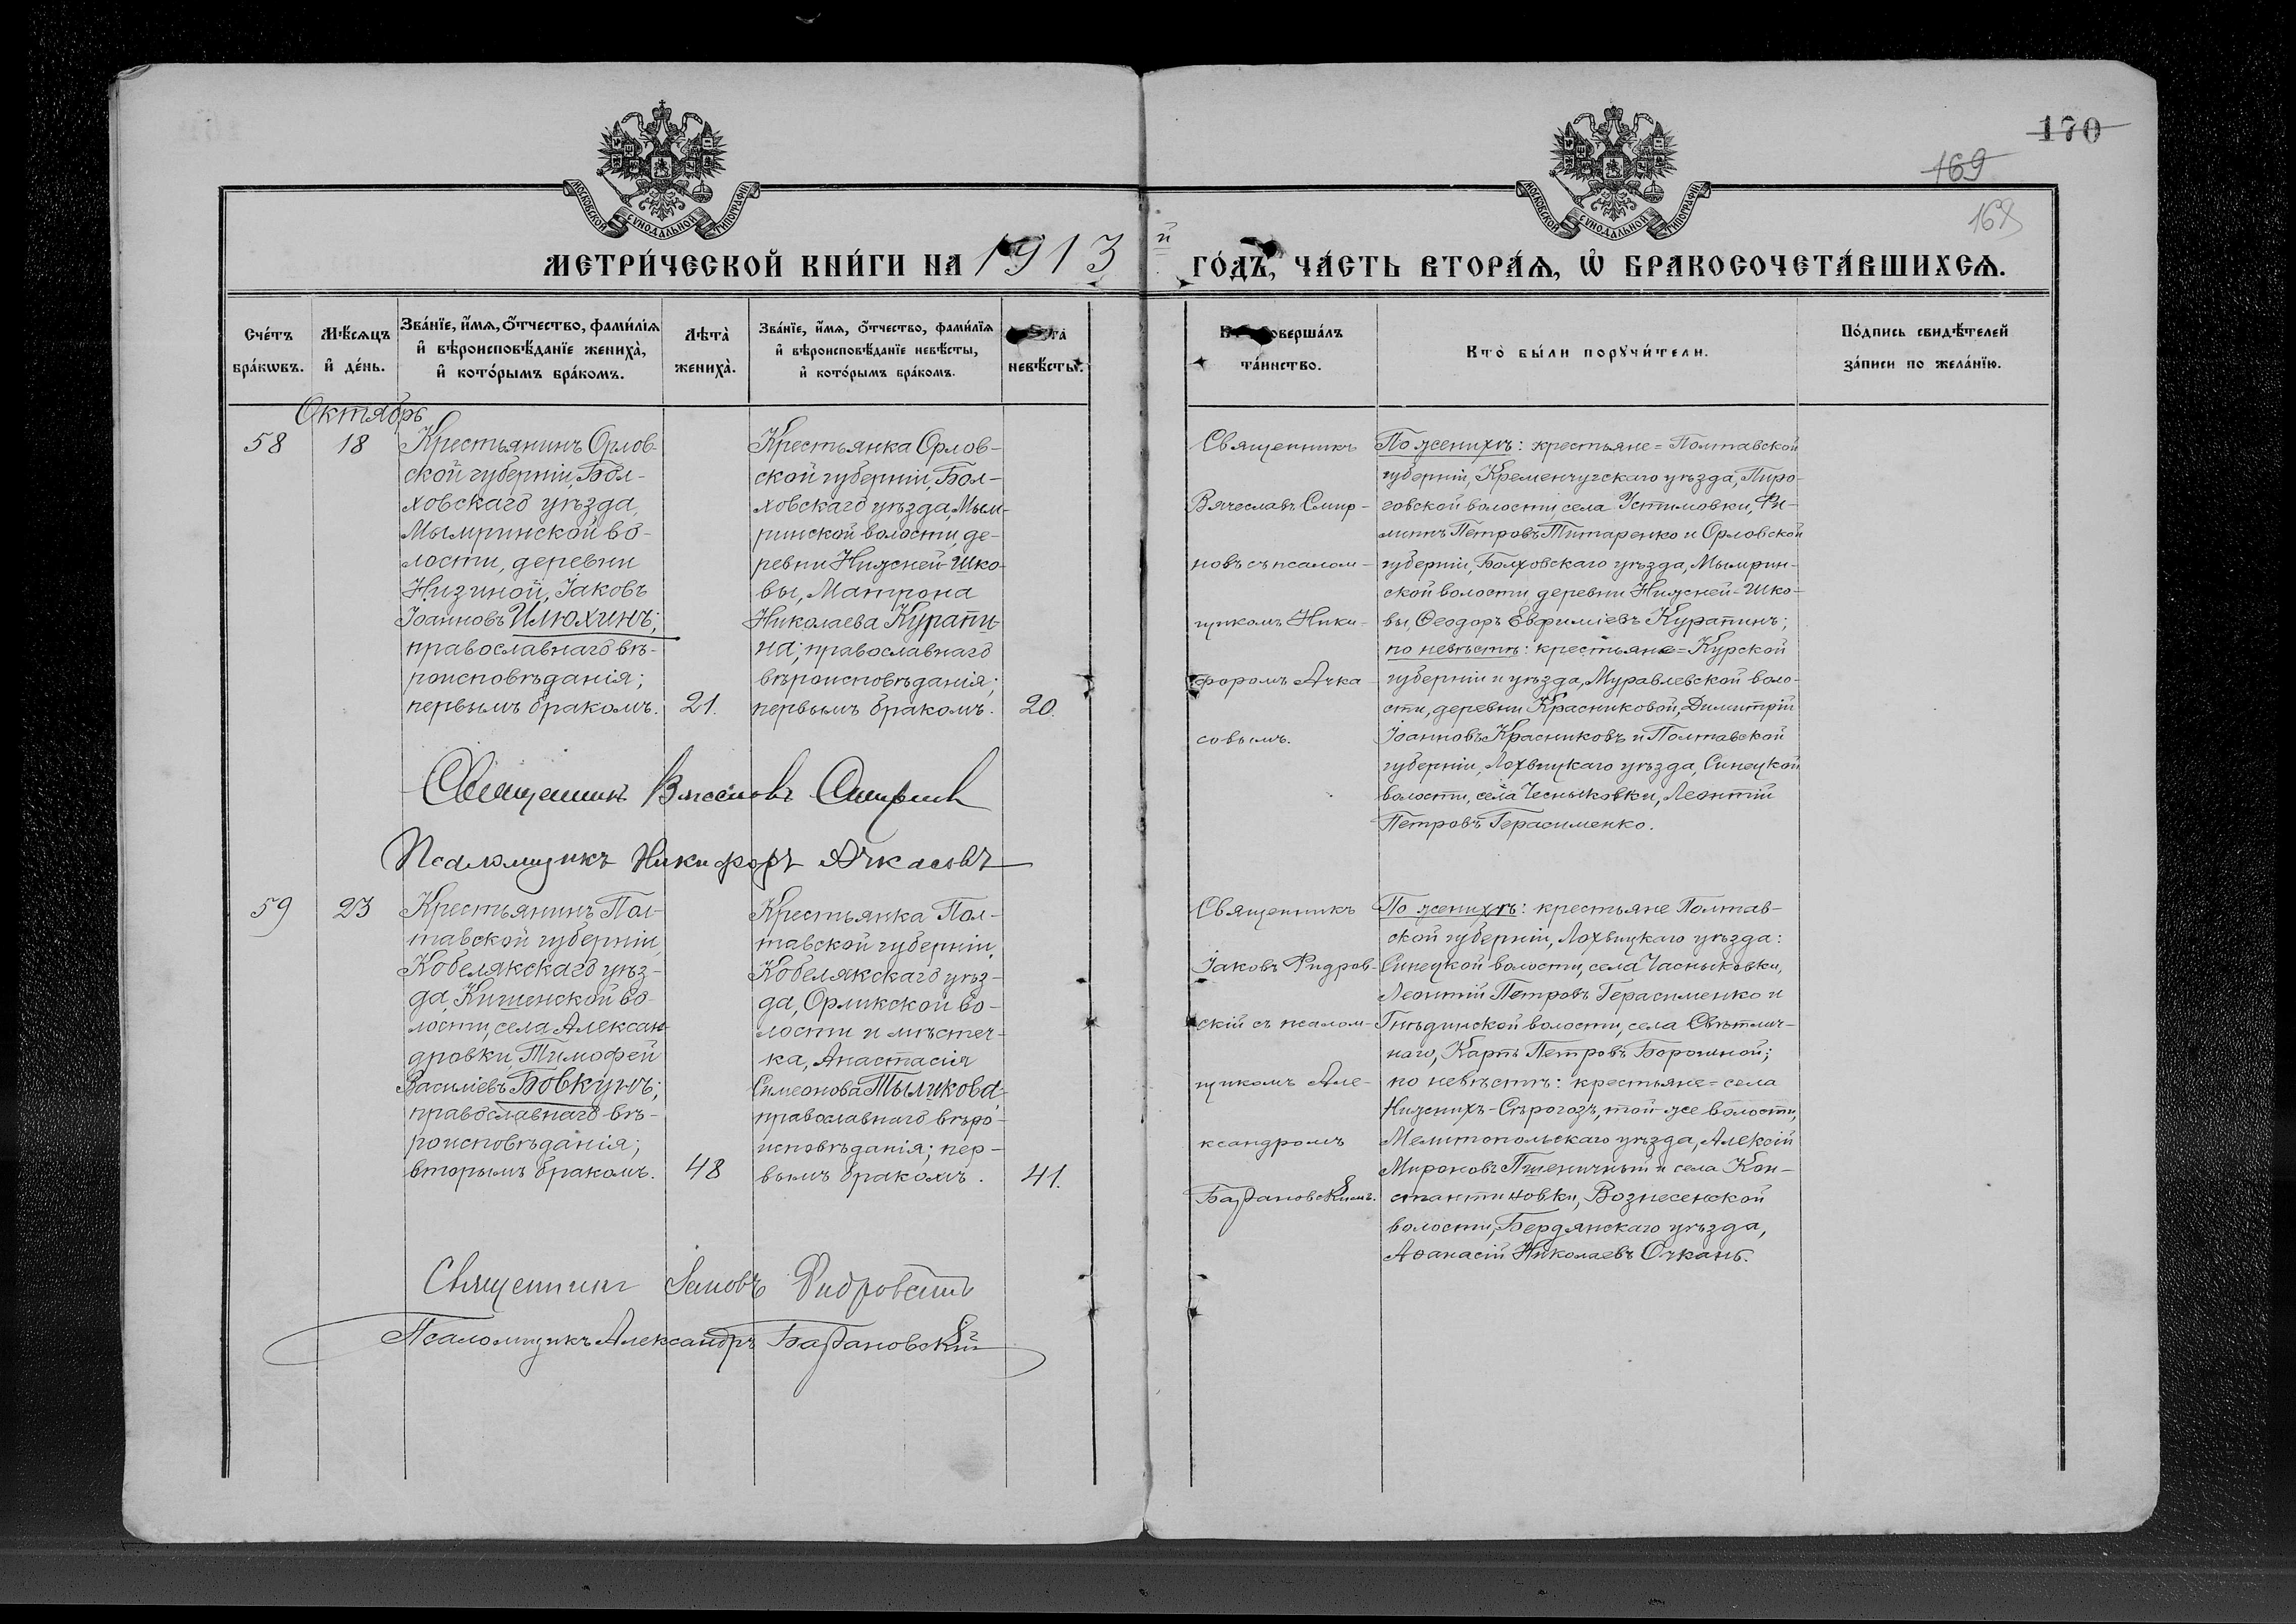 170
169
168
МОСКОВСКОЙ СѴНОДАЛЬНОЙ ТИПОГРАФІИ
МОСКОВСКОЙ СѴНОДАЛЬНОЙ ТИПОГРАФІИ
МЕТРИ́ЧЕСКОЙ КНИ́ГИ НА 1913 й ГО́ДЪ, ЧА́СТЬ ВТОРА́Ѧ, Ѡ҆ БРАКОСОЧЕТА́ВШИХСѦ.
Сче́тъ
бра́кѡвъ.
Мѣ́сѧцъ
и҆ де́нь.
Зва́нїе, и҆́мѧ, ѻ҆́тчество, фами́лїѧ
и҆ вѣроисповѣ́данїе жениха̀,
и҆ кото́рымъ бра́комъ.
Лѣта̀
жениха̀.
Зва́нїе, и҆́мѧ, ѻ҆́тчество, фами́лїѧ
и҆ вѣроисповѣ́данїе невѣ́сты,
и҆ кото́рымъ бра́комъ.
невѣ́сты.
соверша́лъ
та́инство.
Кто̀ бы́ли порꙋчи́тели.
По́дпись свидѣ́телей
за́писи по жела́нїю.
Октябрь
58
18
Крестьянинъ Орлов-
ской губерніи, Бол-
ховскаго уѣзда,
Мымринской во-
лости, деревни
Низиной, Іаковъ
Іоанновъ Илюхинъ;
православнаго вѣ-
роисповѣданія;
первымъ бракомъ.
21.
Крестьянка Орлов-
ской губерніи, Бол-
ховскаго уѣзда, Мым-
ринской волости, де-
ревни Нижней-Шко-
вы, Матрона
Николаева Курапи-
на; православнаго
вѣроисповѣданія;
первымъ бракомъ.
20.
Священникъ
Вячеславъ Смир-
новъ съ псалом-
щикомъ Ники-
форомъ Ачка-
совымъ.
По женихѣ: крестьяне = Полтавской
губерніи, Кременчугскаго уѣзда, Пиро-
говской волости, села Устимовки, Фи-
липпъ Петровъ Титаренко и Орловской
губерніи, Болховскаго уѣзда, Мымрин-
ской волости, деревни Нижней-Шко-
вы, Ѳеодоръ Евфиміевъ Курапинъ;
по невѣстѣ: крестьяне = Курской
губерніи и уѣзда, Муравлевской воло-
сти, деревни Красниковой, Димитрій
Іоанновъ Красниковъ и Полтавской
губерніи, Лохвицкаго уѣзда, Синецкой
волости, села Чесныковки, Леонтій
Петровъ Герасименко.
Священникъ Вячеславъ Смирновъ
Псаломщикъ Никифоръ Ачкасовъ
59
23
Крестьянинъ Пол-
тавской губерніи,
Кобелякскаго уѣз-
да, Кишенской во-
лости, села Алексан-
дровки, Тимофей
Василіевъ Бовкунъ;
православнаго вѣ-
роисповѣданія;
вторымъ бракомъ.
48
Крестьянка Пол-
тавской губерніи,
Кобелякскаго уѣз-
да, Орликской во-
лости и мѣстеч-
ка, Анастасія
Симеонова Тыликова
православнаго вѣро-
исповѣданія; пер-
вымъ бракомъ.
41.
Священникъ
Іаковъ Фидров-
скій съ псалом-
щикомъ Але-
ксандромъ
Баздановскимъ.
По женихѣ: крестьяне Полтав-
ской губерніи, Лохвицкаго уѣзда:
Синецкой волости, села Часныковки,
Леонтій Петровъ Герасименко и
Гнѣдинской волости, села Свѣтлич-
наго, Карпъ Петровъ Борошной;
по невѣстѣ: крестьяне = села
Нижнихъ-Сѣрогозъ, той-же волости,
Мелитопольскаго уѣзда, Алексій
Мироновъ Пшеничный и села Кон-
стантиновки, Вознесенской
волости, Бердянскаго уѣзда,
Аѳанасій Николаевъ Очкань.
Священникъ Іаковъ Фидровскій
Псаломщикъ Александръ Баздановскій